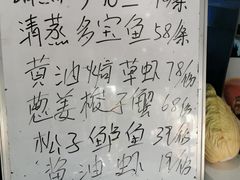 清蒸多宝鱼58/条
黄油焗草虾78/份
葱姜梭子蟹68/份
松子鲈鱼39/份
酱油虾19/份